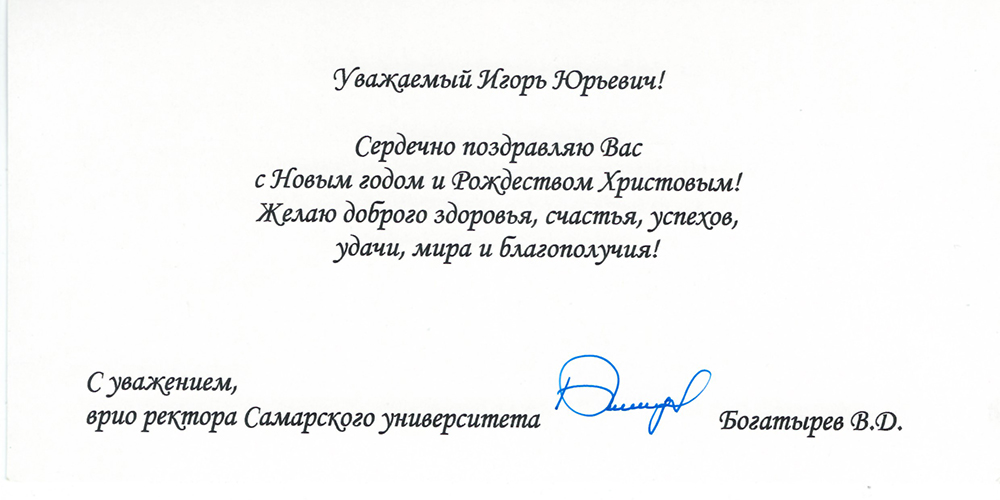 Уважаемый Игорь Юрьевич!
Сердечно поздравляю Вас
с Новым годом и Рождеством Христовым!
Желаю доброго здоровья, счастья, успехов,
удачи, мира и благополучия!
С уважением,
врио ректора Самарского университета Богатырев В.Д.